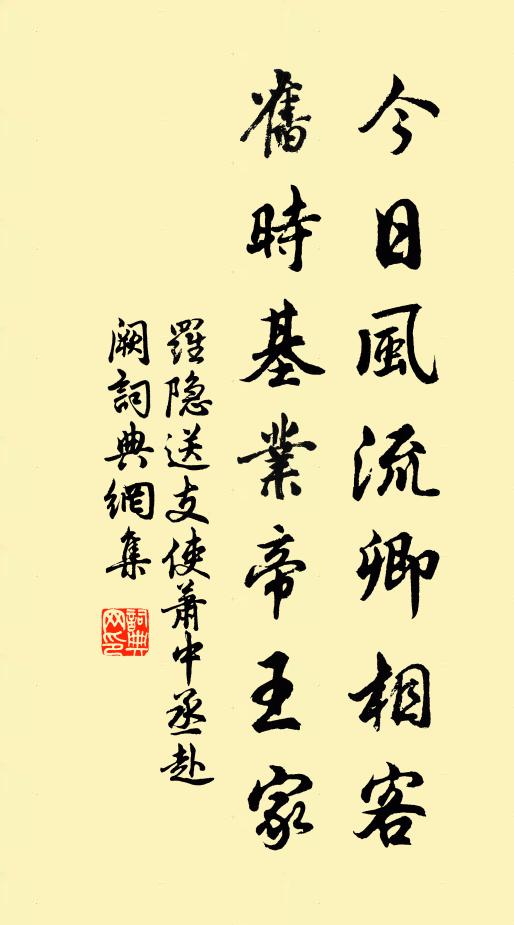 今日風流卿相客
舊時基業帝王家
羅隐送支使蕭中丞赴
阙詞典網集
詞典
网印